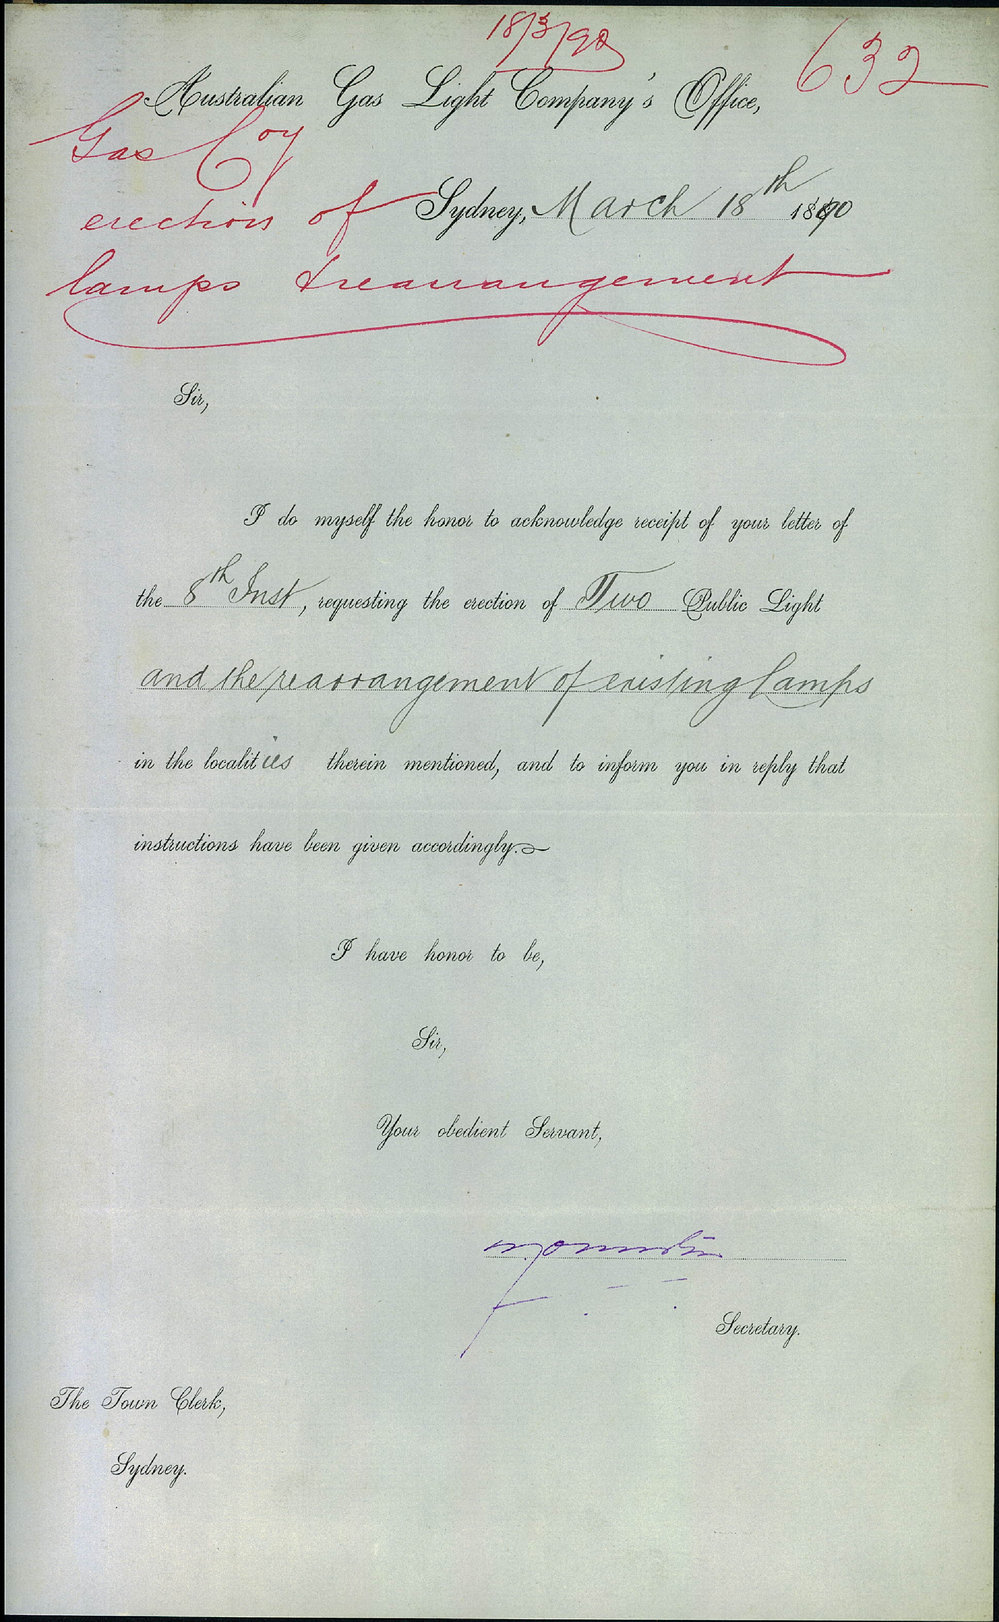 18/3/90
632
Australian Gas Light Company's Office,
Gas Coy
Sydney, March 18th 1890
erection of
lamps & rearrangement
Sir,
I do myself the honor to acknowledge receipt of your letter of
the 8th Inst, requesting the erection of Two Public Light
and the rearrangement of existing Lamps
in the localities therein mentioned, and to inform you in reply that
instructions have been given accordingly.
I have honor to be,
Sir,
Your obedient Servant,
Secretary.
The Town Clerk,
Sydney.